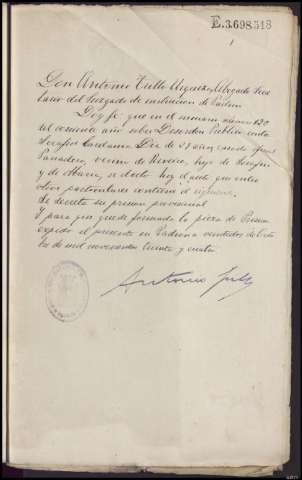 E.3.698.313
1
Don Antonio Trillo Abogado Secre
tario del Juzgado de instrucción de
Doy fé que en el sumario número 120
del corriente año sobre Desorden Publico contra
Serafin Cardama Diz de 29 años casado
Panadero, vecino de hijo de Serafin
y de Maria, se dictó hoy el auto que entre
otros particulares contiene el siguiente
Se decreta su prision provisional
Y para que quede formada la pieza de Prision
expido el presente en Padron a veintidos de Octu
bre de mil novecientos treinta y cuatro
Antonio